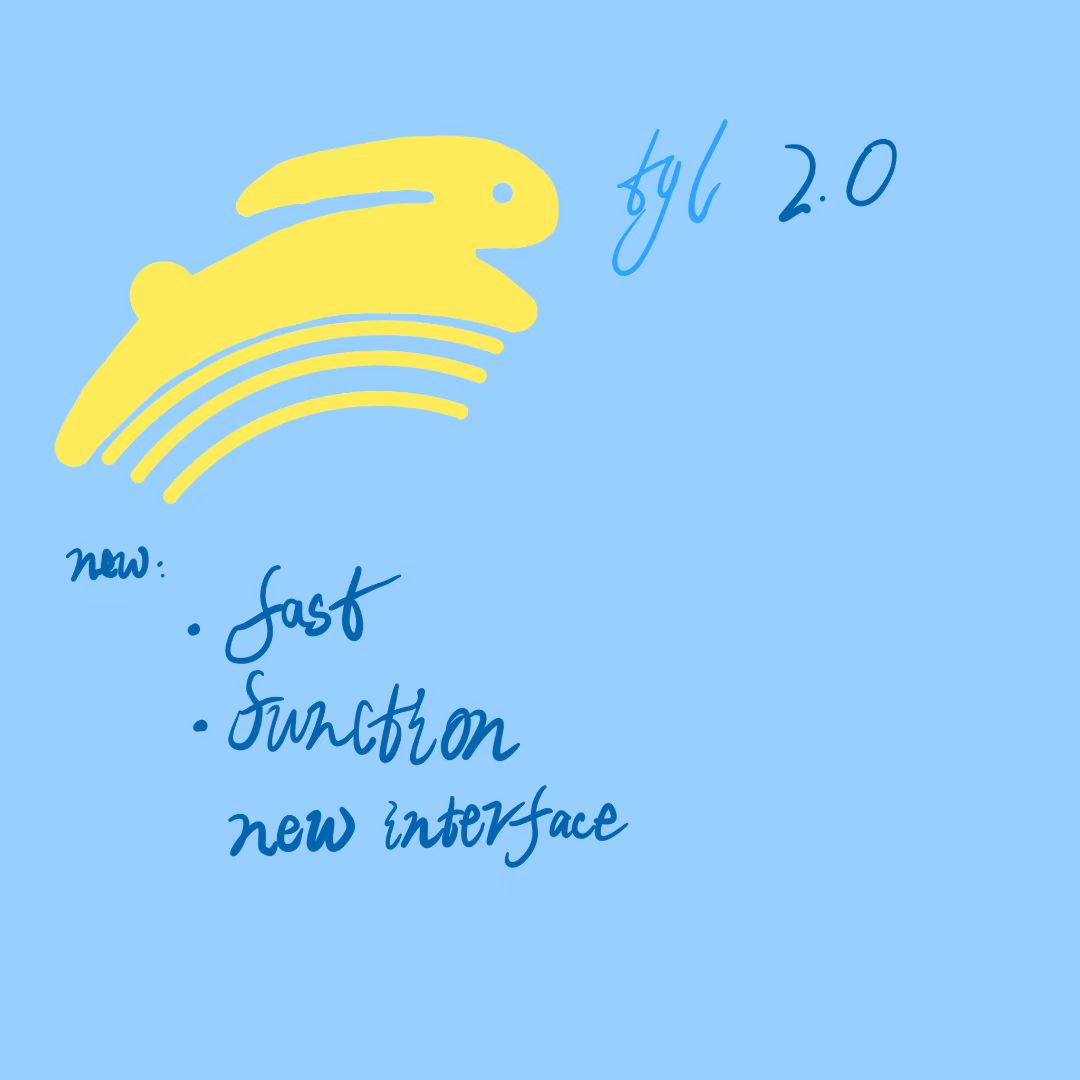 tyl 2.0
new:
• fast
• function
new interface